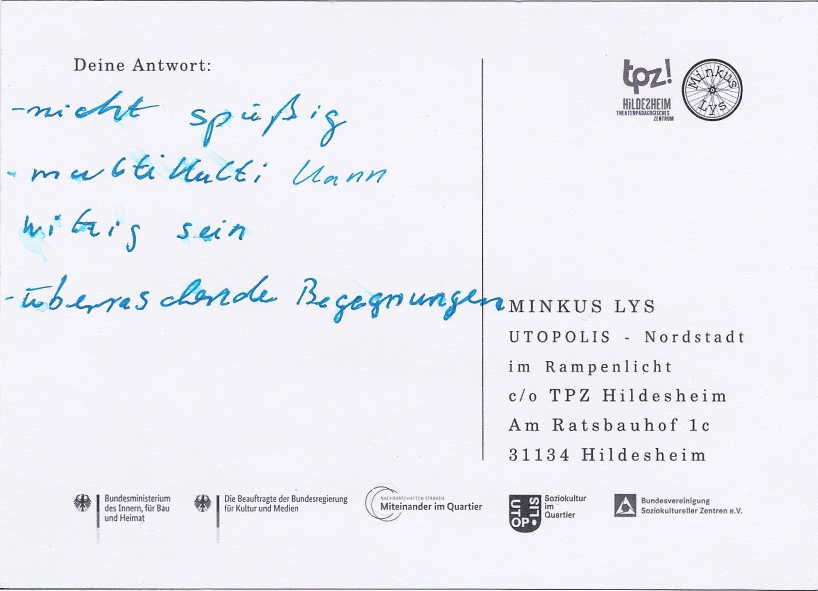 Deine Antwort:
-nicht spüßig
- multikulti kann
witzig sein
-überraschende Begegnungen
tpz!
HiLDESHEIM
THEATERPÄDAGOGISCHES
ZENTRUM
Minkus
LYS
MINKUS LYS
UTOPOLIS - Nordstadt
im Rampenlicht
c/o TPZ Hildesheim
Am Ratsbauhof 1c
31134 Hildesheim
Bundesministerium
des Innern, für Bau
und Heimat
Die Beauftragte der Bundesregierung
für Kultur und Medien
NACHBARSCHAFTEN STÄRKEN
Miteinander im Quartier
UTOP●LIS
Soziokultur
im
Quartier
Bundesvereinigung
Soziokultureller Zentren e.V.